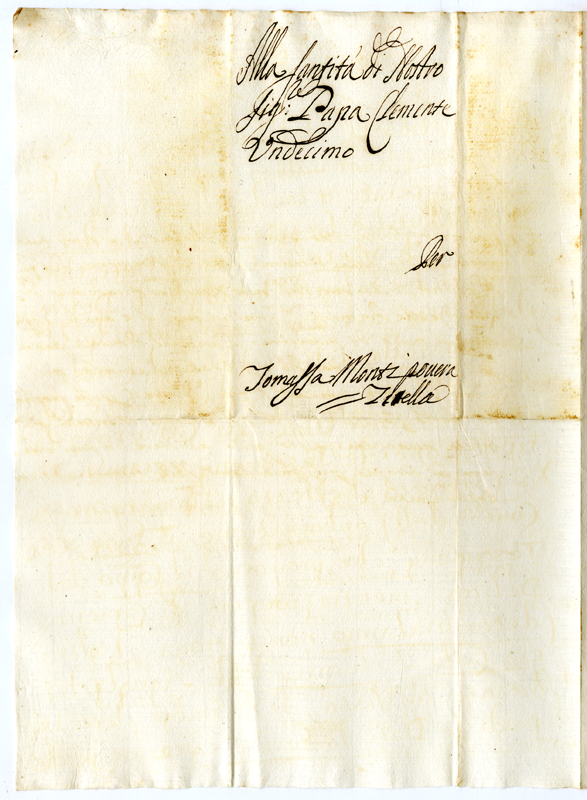 Alla Santità di Nostro
Sig:re Papa Clemente
Undecimo
Per
Tomassa Monti povera
Zitella